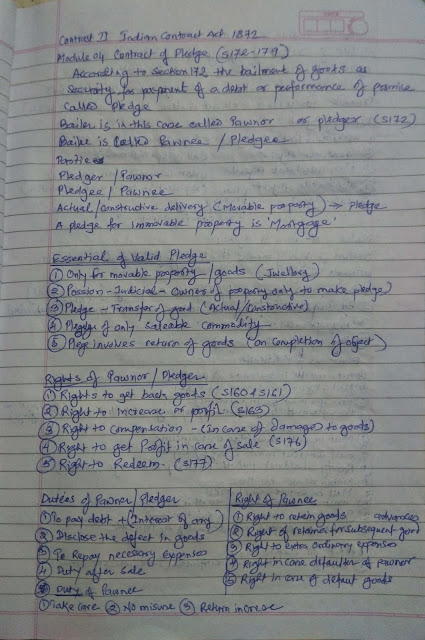 Contract II Indian Contract Act 1872
Module 04 Contract of Pledge (S172-179)
According to Section 172 the bailment of goods as
security for payment of a debt or performance of promise
called pledge
Bailer is in this case called Pawnor or pledger (S172)
Bailee is called Pawnee / Pledgee
Parties
Pledger / Pawnor
Pledgee / Pawnee
Actual/Constructive delivery (Movable property) → Pledge
A pledge for immovable property is 'Mortgage'
Essential of Valid Pledge
① Only for movable property/goods (Jwellory)
② Possion - Judicial - Owner of property only to make pledge)
③ Pledge - Transfer of good (Actual/Constructive)
④ Pledge of only saleable commodity
⑤ Plege involves return of goods (on completion of object)
Rights of Pawnor / Pledger
① Rights to get back goods (S160 & S161)
② Right to increase or profit (S163)
③ Right to compensation - (in case of damage to goods)
④ Right to get Profit in case of sale (S176)
⑤ Right to Redeem. (S177)
Duties of Pawner / Pledger
① To pay debt + (Interest if any)
② Disclose the defect in goods
③ To Repay necessary expenses
④ Duty after sale
Duty of Pawnee
① Take care ② No misuse ③ Return increase
Right of Pawnee
① Right to retain goods advances
② Right of retainer for subsequent
③ Right to extra ordinary expenses
④ Right in case defaulter of pawnor
⑤ Right in case of default goods